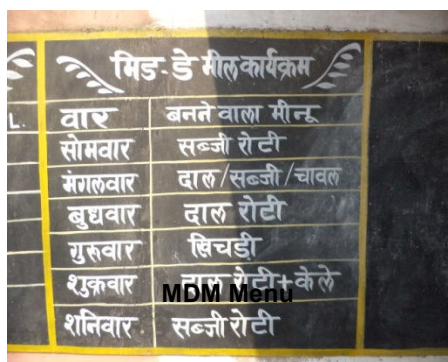 मिड-डे मील कार्यक्रम
वार बनने वाला मीनू
L.
सोमवार सब्जी रोटी
मंगलवार दाल/सब्जी/चावल
बुधवार दाल रोटी
गुरुवार खिचड़ी
शुक्रवार दाल रोटी+केले
MDM Menu
शनिवार सब्जी रोटी